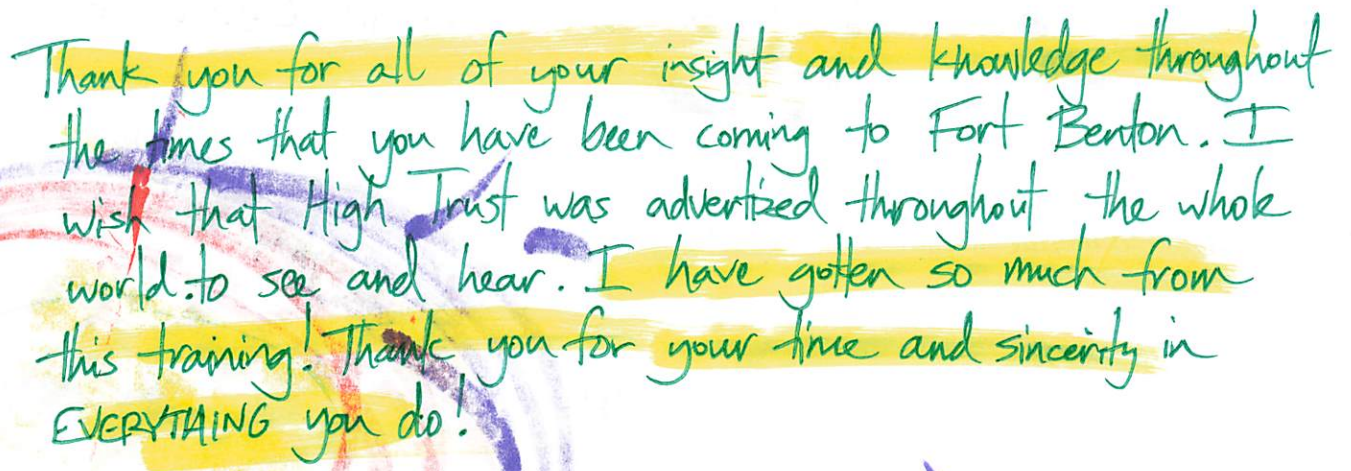 Thank you for all of your insight and knowledge throughout
the times that you have been coming to Fort Benton. I
wish that High Trust was advertized throughout the whole
world.to see and hear. I have gotten so much from
this training! Thank you for your time and sincerity in
EVERYTHING you do!